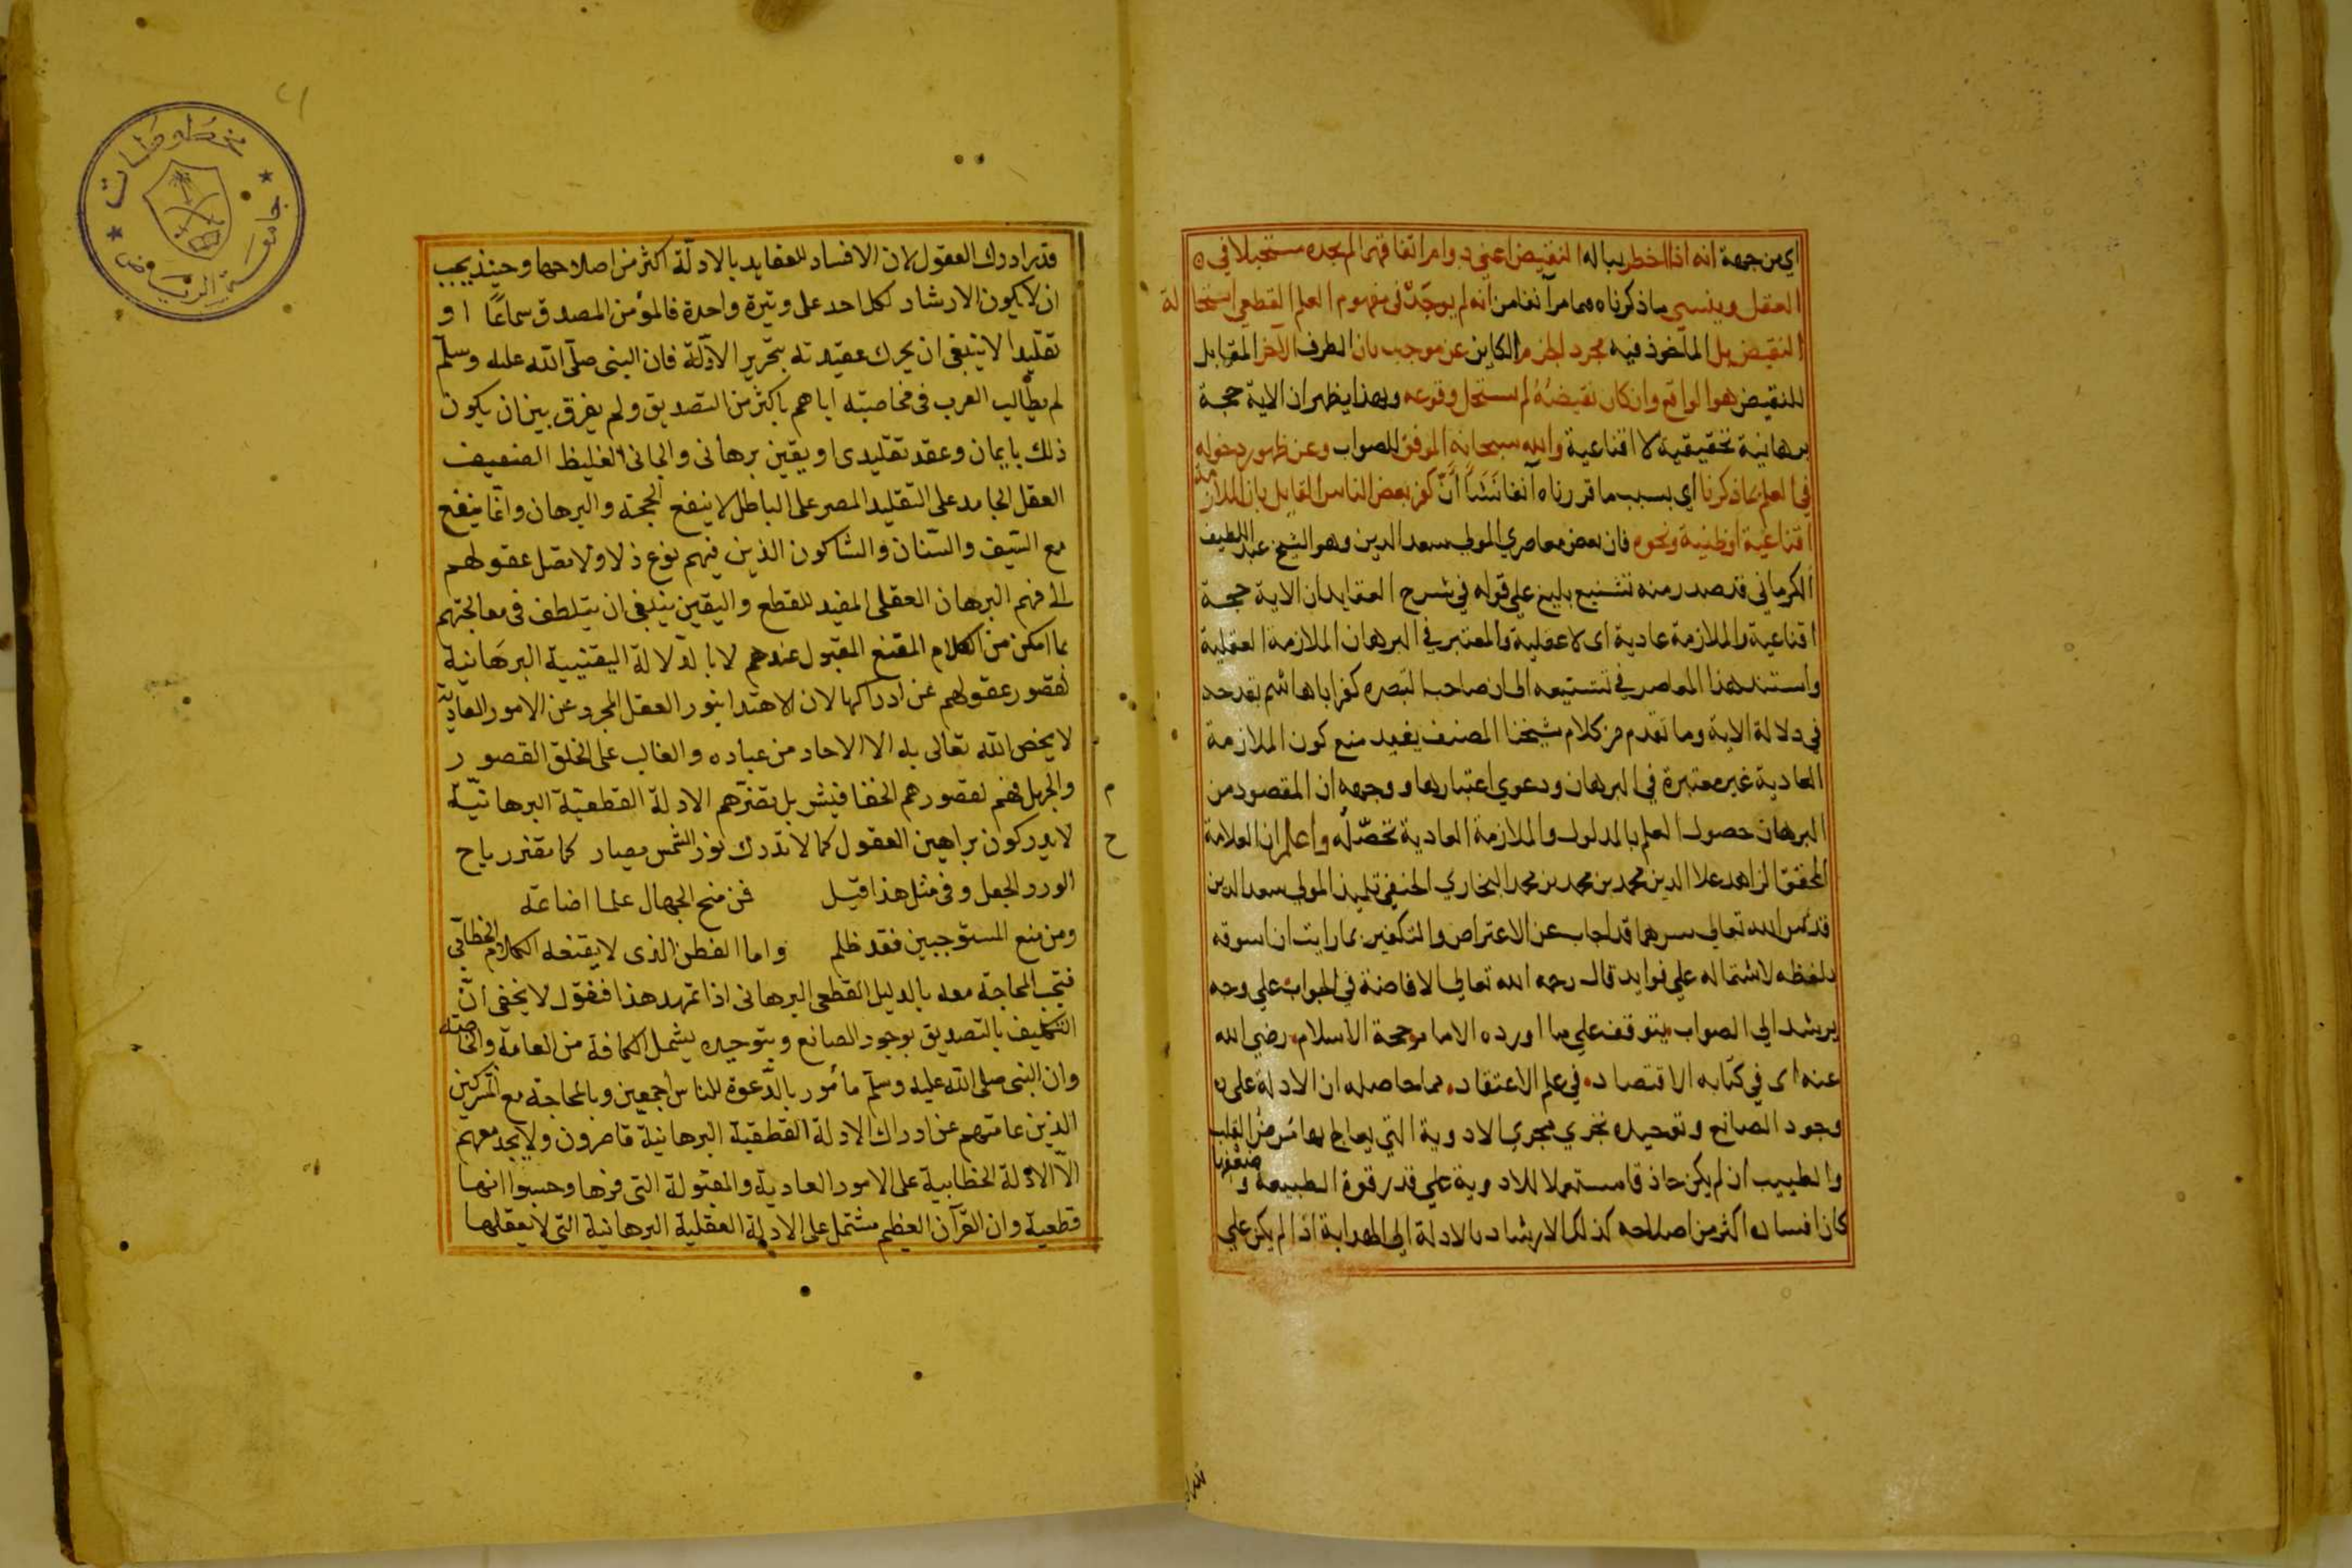 اي من جهة انه اذا اخطر بباله النقيض اعني دوام اتفاقهما لم يجده مستحيلا في
العقل وينسى ما ذكرناه مما مر آنفا من انه لم يوجد في مفهوم العلم القطعي استحالة
النقيض بل المأخوذ فيه مجرد الجزم الكاين عن موجب بان الطرف الآخر المقابل
للنقيض هو الواقع وان كان نقيضه لم يستحل وقوعه وبهذا يظهر ان الاية حجة
برهانية تحقيقية لا اقناعية والله سبحانه الموفق للصواب وعن ظهور دخوله
في العلم بما ذكرنا اي بسبب ما قررناه آنفا نشأ ان كفر بعض الناس القايل بان الملازمة
اقناعية او ظنية ونحوه فان بعض معاصري المولى سعد الدين وهو الشيخ عبد اللطيف
الكرماني قد صدر منه تشنيع بليغ علي قوله في شرح العقايد ان الاية حجة
اقناعية والملازمة عادية اى لا عقلية والمعتبر في البرهان الملازمة العقلية
واستند هذا المعاصر في تشنيعه الى ان صاحب التبصره كفر اباهاشم بقدحه
في دلالة الاية وما تقدم من كلام شيخنا المصنف يفيد منع كون الملازمة
العادية غير معتبرة في البرهان ودعوي اعتبارها ووجهه ان المقصود من
البرهان حصول العلم بالمدلول والملازمة العادية تحصله واعلم ان العلامة
المحقق الزاهد علا الدين محمد بن محمد بن محمد البخاري الحنفي تلميذ المولى سعد الدين
قدس الله تعالى سرهما قد اجاب عن الاعتراض والتكفير بما رايت ان اسوقه
بلفظه لاشتماله علي فوايد قال رحمه الله تعالى الافاضة في الجواب علي وجه
يرشد الي الصواب يتوقف علي ما اورده الامام حجة الاسلام رضي الله
عنه اى في كتابه الاقتصاد في علم الاعتقاد مما حاصله ان الادلة على
وجود الصانع وتوحيده تجري مجري الادوية التي يعالج بها مرض القلب
والطبيب ان لم يكن حاذقا مستعملا للادوية علي قدر قوة الطبيعة وضعفها
كان افساده اكثر من اصلاحه كذلك الارشاد بالادلة الى الهداية اذا لم يكن علي
قدر ادراك العقول لان الافساد للعقايد بالادلة اكثر من اصلاحها وحينئذ يجب
ان لا يكون الارشاد لكل احد على وتيرة واحدة فالمؤمن المصدق سماعا او
تقليدا لا ينبغى ان يحرك عقيدته بتحرير الادلة فان النبى صلى الله عليه وسلم
لم يطالب العرب فى مخاطبته اياهم باكثر من التصديق ولم يفرق بين ان يكون
ذلك بايمان وعقد تقليدى او يقين برهانى والجانى الغليظ الضعيف
العقل الجامد على التقليد المصر على الباطل لا ينفع الحجة والبرهان وانما ينفع
مع السيف والسنان والشاكون الذين فيهم نوع ذكا ولا تصل عقولهم
الى فهم البرهان العقلى المفيد للقطع واليقين ينبغى ان يتلطف فى معالجتهم
بما امكن من الكلام المقنع المقبول عندهم لا بالدلالة اليقينية البرهانية
لقصور عقولهم عن ادراكها لان الاهتدا بنور العقل المجرد عن الامور العادية
لا يخص الله تعالى به الا الاحاد من عباده والغالب على الخلق القصور
والجهل فهم لقصورهم الخفافيش بل تضرهم الادلة القطعية البرهانية
لا يدركون براهين العقول كما لا تدرك نور الشمس ابصار كما تضر رياح
م
ح
الورد الجعل وفى مثل هذا قيل فمن منح الجهال علما اضاعه
ومن منع المستوجبين فقد ظلم واما الفطن الذى لا يقنعه الكلام الخطابى
فتجب المحاجة معه بالدليل القطعى البرهانى اذا تمهد هذا فنقول لا يخفى ان
التكليف بالتصديق بوجود الصانع وبتوحيده يشمل الكافة من العامة والخاصة
وان النبى صلى الله عليه وسلم مأمور بالدعوة للناس اجمعين وبالمحاجة مع المشركين
الذين عامتهم عن ادراك الادلة القطعية البرهانية قاصرون ولا يجدى معهم
الا الادلة الخطابية على الامور العادية والمقبولة التى الفوها وحسبوا انها
قطعية وان القرآن العظيم مشتمل على الادلة العقلية البرهانية التى لا يعقلها
مخطوطات
جامعة الرياض